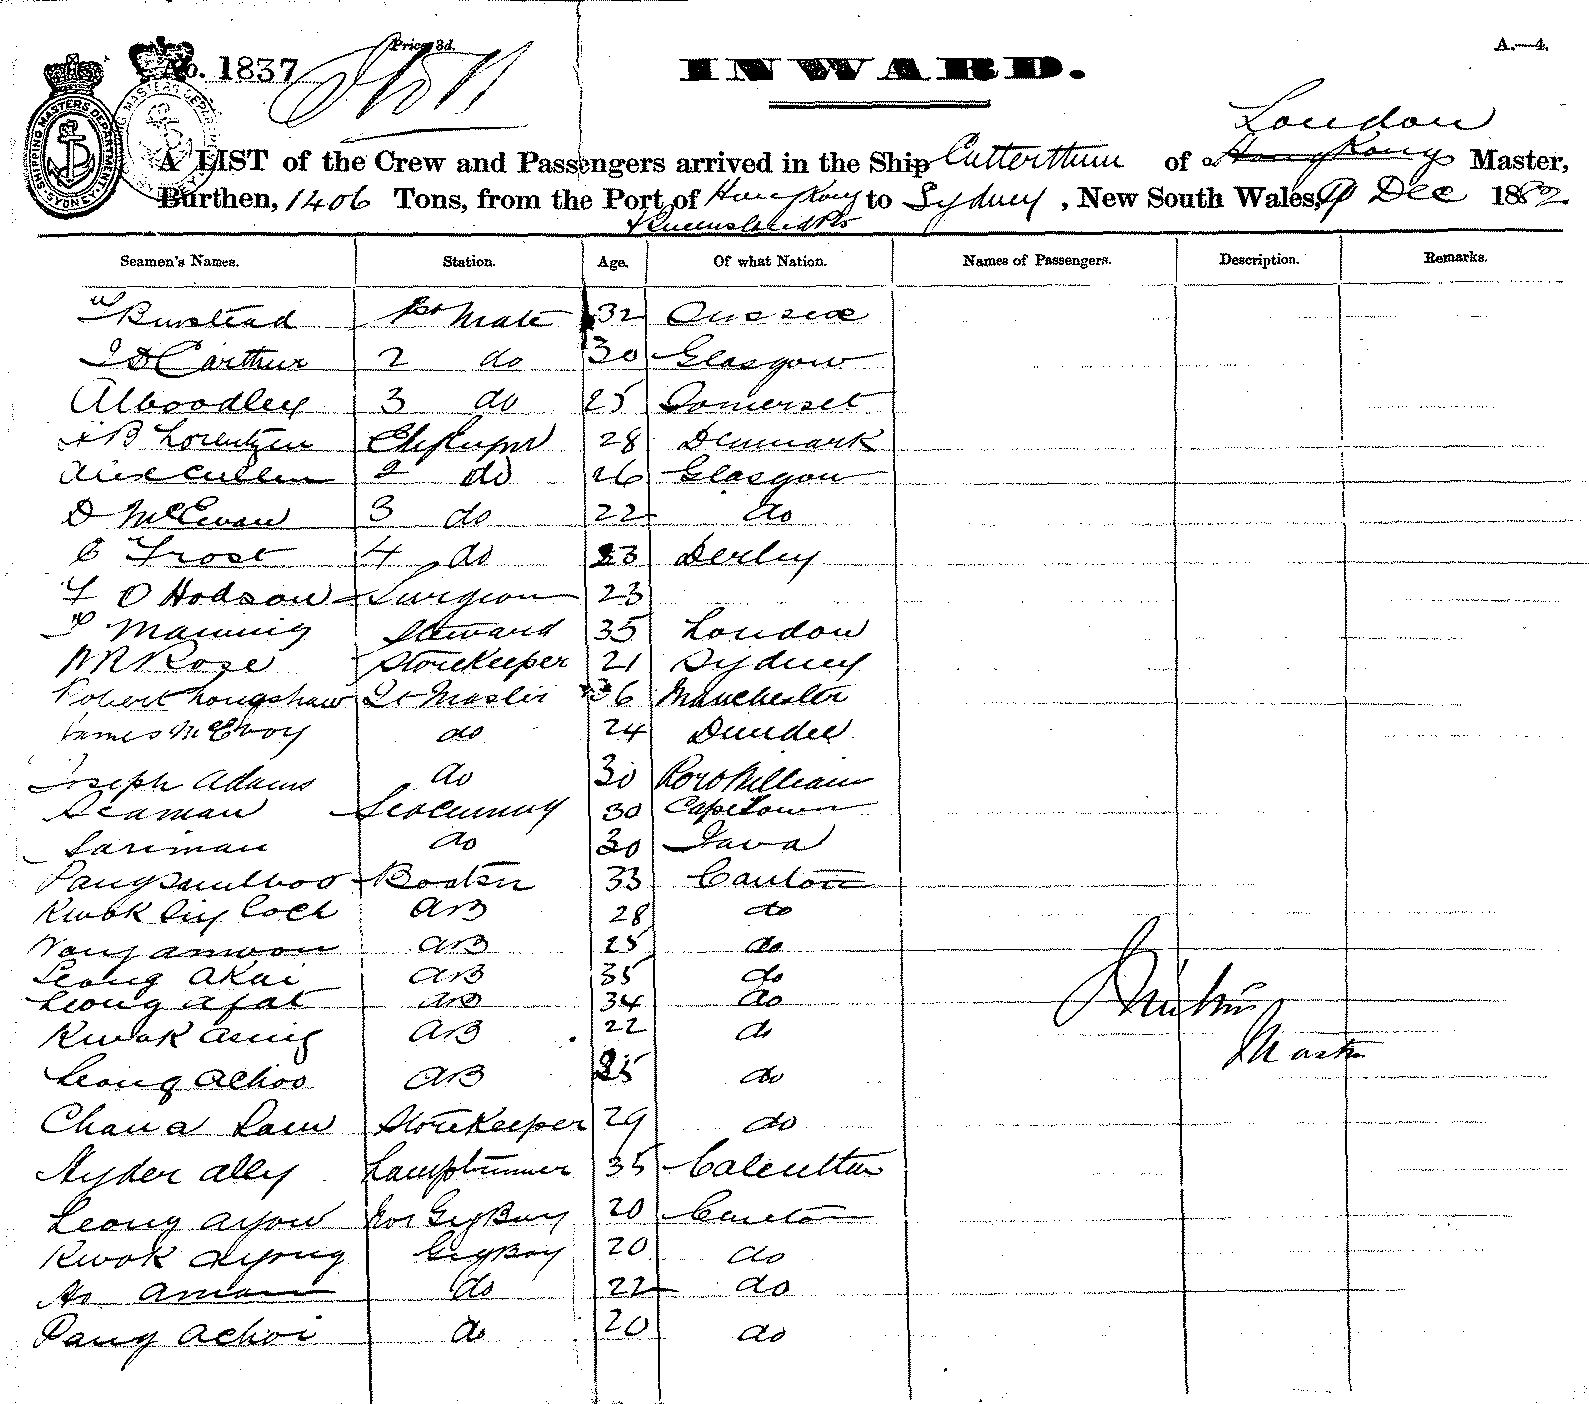 A.—4.
Price 3d.
No. 1837
INWARD.
London
A LIST of the Crew and Passengers arrived in the Ship Catterthun of Hong Kong Master,
Burthen, 1406 Tons, from the Port of Hong Kong to Sydney, New South Wales, 9 Dec 1882
& Queensland Pts
SHIPPING MASTERS DEPARTMENT SYDNEY
Seamen's Names. Station. Age. Of what Nation. Names of Passengers. Description. Remarks.
Binstead 1st Mate 32 Sussex
J D Carthur 2 do 30 Glasgow
A Woodley 3 do 25 Somerset
A B Lorentzen Ch Engnr 28 Denmark
Alex Cullen 2 do 26 Glasgow
D McEwan 3 do 22 do
C Frost 4 do 23 Derby
F O Hodson Surgeon 23
Manning Steward 35 London
W R Rose Storekeeper 21 Sydney
Robert Longshaw Qt Master 36 Manchester
James McEvoy do 24 Dundee
Joseph Adams do 30 William
Seaman Seacunny 30 Cape Town
Sariman do 30 Java
Boatsn 33 Canton
Kwok AB 28 do
AB 25 do
Leong Akai AB 35 do
Leong Afat AB 34 do
Kwok Aming AB 22 do
Leong Achoo AB 25 do
Chan a Sam Storekeeper 29 do
Hyder Ally Lamptrimmer 35 Calcutta
Leong Ayow Gig Boy 20 Canton
Kwok Ayong Gig Boy 20 do
Ho Aman do 22 do
Pang Achoi do 20 do
Master